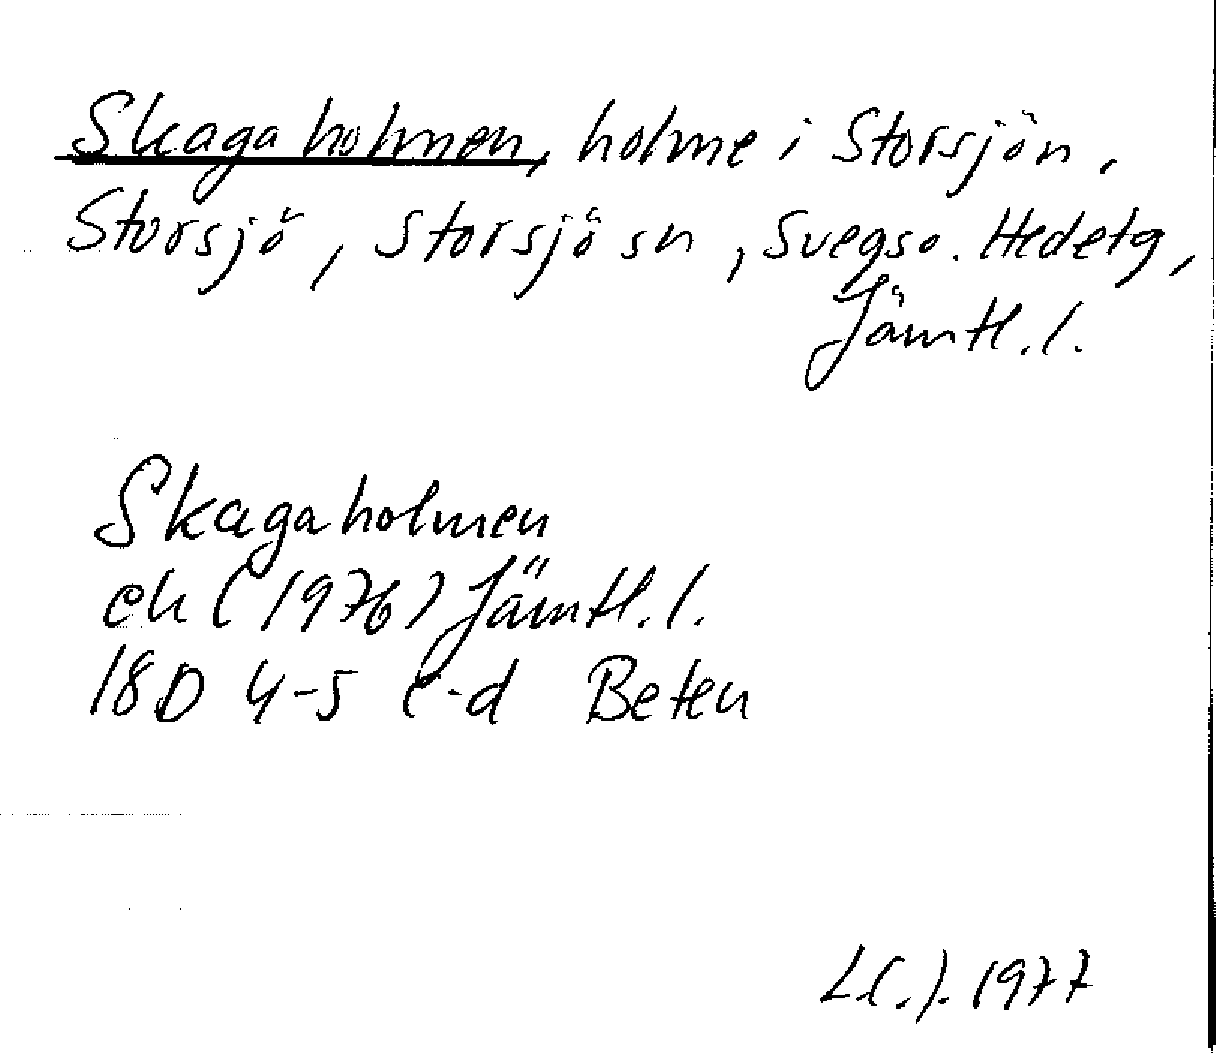 Skagaholmen, holme i Storsjön,
Storsjö, Storsjö sn, Svegs o. Hedetg,
Jämtl. l.
Skagaholmen
ek (1976) Jämtl. l.
18D 4-5 c-d Beten
1977